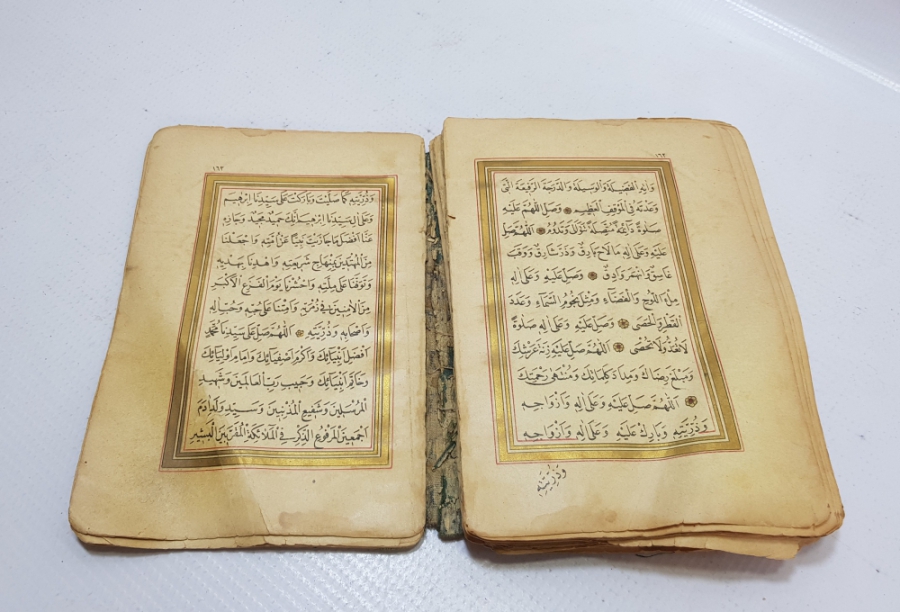 ١٦٣
وَاٰتِهِ الْفَضِيلَةَ وَالْوَسِيلَةَ وَالدَّرَجَةَ الرَّفِيعَةَ الَّتِى
وَعَدْتَهُ فِى الْمَوْقِفِ الْعَظِيمِ وَصَلِّ اللّٰهُمَّ عَلَيْهِ
صَلٰوةً دَائِمَةً مُتَّصِلَةً تَتَوَالٰى وَتَدُومُ اَللّٰهُمَّ صَلِّ
عَلَيْهِ وَعَلٰى اٰلِهِ مَا لَاحَ بَارِقٌ وَذَرَّ شَارِقٌ وَوَقَبَ
غَاسِقٌ وَانْهَمَرَ وَادِقٌ وَصَلِّ عَلَيْهِ وَعَلٰى اٰلِهِ
مِلْءَ اللَّوْحِ وَالْفَضَاءِ وَمِثْلَ نُجُومِ السَّمَاءِ وَعَدَدَ
الْقَطْرِ وَالْحَصٰى وَصَلِّ عَلَيْهِ وَعَلٰى اٰلِهِ صَلٰوةً
لَا تُعَدُّ وَلَا تُحْصٰى اَللّٰهُمَّ صَلِّ عَلَيْهِ زِنَةَ عَرْشِكَ
وَمَبْلَغَ رِضَاكَ وَمِدَادَ كَلِمَاتِكَ وَمُنْتَهٰى رَحْمَتِكَ
اَللّٰهُمَّ صَلِّ عَلَيْهِ وَعَلٰى اٰلِهِ وَاَزْوَاجِهِ
وَذُرِّيَّتِهِ وَبَارِكْ عَلَيْهِ وَعَلٰى اٰلِهِ وَاَزْوَاجِهِ
وَذُرِّيَّتِهِ
١٦٣
وَذُرِّيَّتِهِ كَمَا صَلَّيْتَ وَبَارَكْتَ عَلٰى سَيِّدِنَا اِبْرٰهِيمَ
وَعَلٰى اٰلِ سَيِّدِنَا اِبْرٰهِيمَ اِنَّكَ حَمِيدٌ مَجِيدٌ وَجَازِهِ
عَنَّا اَفْضَلَ مَا جَازَيْتَ نَبِيًّا عَنْ اُمَّتِهِ وَاجْعَلْنَا
مِنَ الْمُهْتَدِينَ بِمِنْهَاجِ شَرِيعَتِهِ وَاهْدِنَا بِهَدْيِهِ
وَتَوَفَّنَا عَلٰى مِلَّتِهِ وَاحْشُرْنَا يَوْمَ الْفَزَعِ الْاَكْبَرِ
مِنَ الْاٰمِنِينَ فِى زُمْرَتِهِ وَاَمِتْنَا عَلٰى حُبِّهِ وَحُبِّ اٰلِهِ
وَاَصْحَابِهِ وَذُرِّيَّتِهِ اَللّٰهُمَّ صَلِّ عَلٰى سَيِّدِنَا مُحَمَّدٍ
اَفْضَلِ اَنْبِيَائِكَ وَاَكْرَمِ اَصْفِيَائِكَ وَاِمَامِ اَوْلِيَائِكَ
وَخَاتَمِ اَنْبِيَائِكَ وَحَبِيبِ رَبِّ الْعَالَمِينَ وَشَهِيدِ
الْمُرْسَلِينَ وَشَفِيعِ الْمُذْنِبِينَ وَسَيِّدِ وَلَدِ اٰدَمَ
اَجْمَعِينَ الْمَرْفُوعِ الذِّكْرِ فِى الْمَلَائِكَةِ الْمُقَرَّبِينَ الْبَشِيرِ